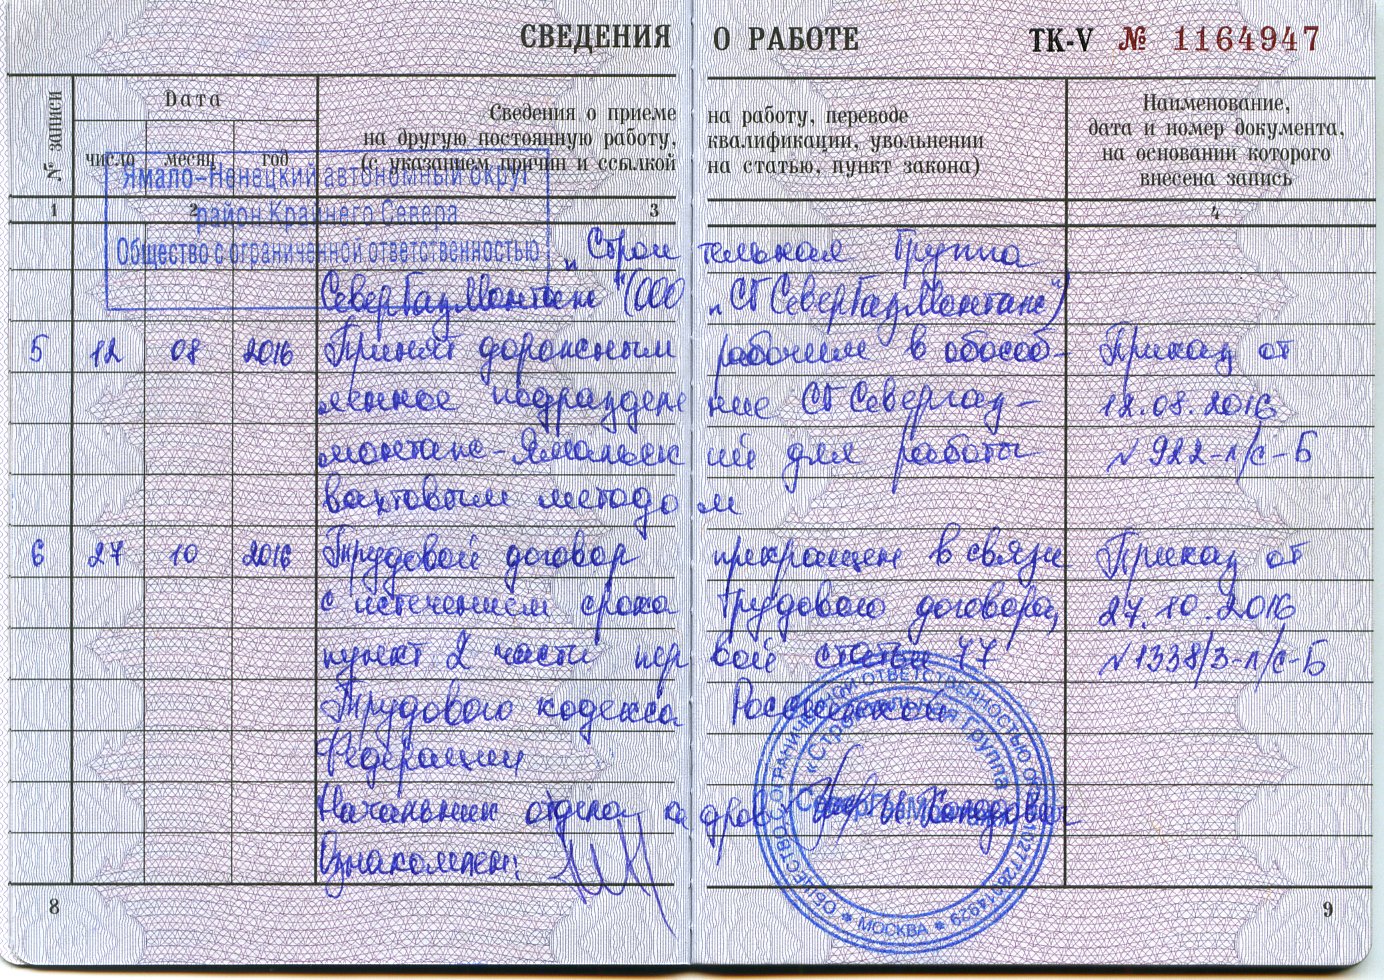 СВЕДЕНИЯ О РАБОТЕ ТК-V № 1164947
№ записи
Дата
число месяц год
Сведения о приеме на работу, переводе
на другую постоянную работу, квалификации, увольнении
(с указанием причин и ссылкой на статью, пункт закона)
Наименование,
дата и номер документа,
на основании которого
внесена запись
1 2 3 4
Ямало-Ненецкий автономный округ
район Крайнего Севера
Общество с ограниченной ответственностью
„Строительная Группа
СеверГазМонтаж" (ООО „СГ СеверГазМонтаж")
5 12 08 2016 Принят дорожным рабочим в обособ- Приказ от
ленное подразделение СГ Севергаз- 12.08.2016
монтаж-Ямальский для работы №922-л/с-Б
вахтовым методом
6 27 10 2016 Трудовой договор прекращен в связи Приказ от
с истечением срока трудового договора, 27.10.2016
пункт 2 части первой статьи 77 №1338/3-л/с-Б
Трудового кодекса Российской
Федерации
Начальник отдела кадров
Ознакомлен:
ОБЩЕСТВО С ОГРАНИЧЕННОЙ ОТВЕТСТВЕННОСТЬЮ
«Строительная Группа
СеверГазМонтаж»
МОСКВА
8 9